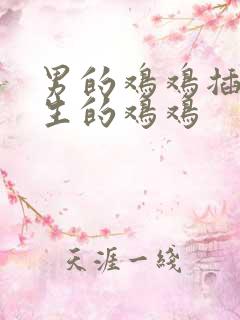 男的鸡鸡插
生的鸡鸡
天涯一线